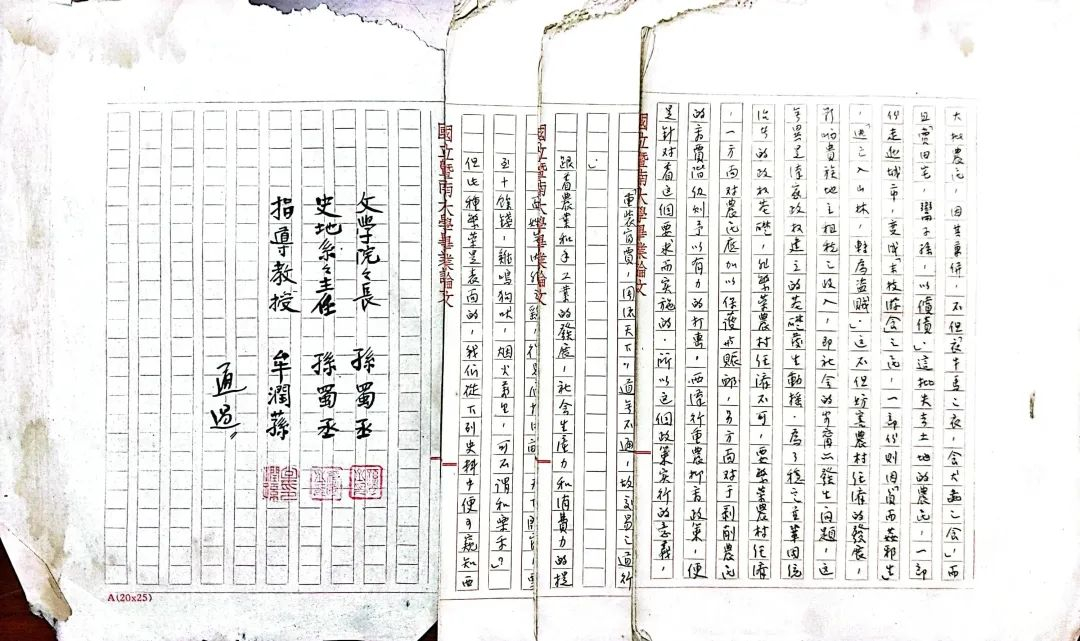 大批農民，因其兼併，不但「衣牛馬之衣，食犬彘之食」，而
且「賣田宅，鬻子孫，以償債」．這批失去土地的農民，一部
份走進城市，變成「末技游食」之民，一部份則因「貧而姦邪生」
，「逃亡入山林，轉為盜賊」．這不但妨害農村經濟的發展，
影响貴族地主租稅之收入，即社會的安寧亦發生問題，這
無異是漢家政权建立的基礎發生動搖．為了穩定並鞏固統
治者的政权基礎，非繁榮農村經濟不可，要繁榮農村經濟
，一方面對農民底加以保護或賑卹，另方面對于剥削農民
的商賈階级則予以有力的打擊，西漢行重農抑商政策，便
是針对着這個要求而实施的．所以這個政策实行的意義，
國立暨南大學畢業論文
車裝富賈，周流天下，道無不通，故交易之道行
」
跟着農業和手工業的發展，社會生產力和消費力的提
國立暨南大學畢業論文
五十餘錢，雞鳴狗吠，烟火萬里，可不謂和樂乎？
但此種繁榮是表面的，我們從下列史料中便可窺知西
國立暨南大學畢業論文
文學院々長 孫蜀丞
史地系々主任 孫蜀丞
指導教授 牟潤孫
通過
A(20x25)